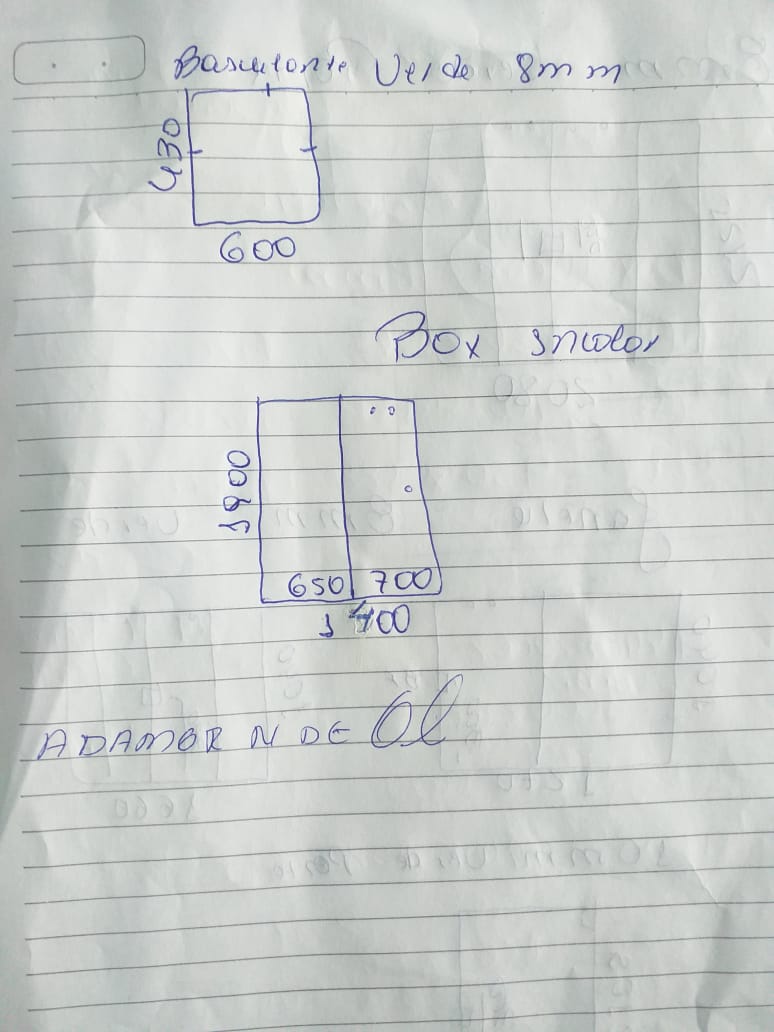 Basculante Verde 8mm
430
600
Box incolor
1900
650 700
1400
ADAMOR N DE